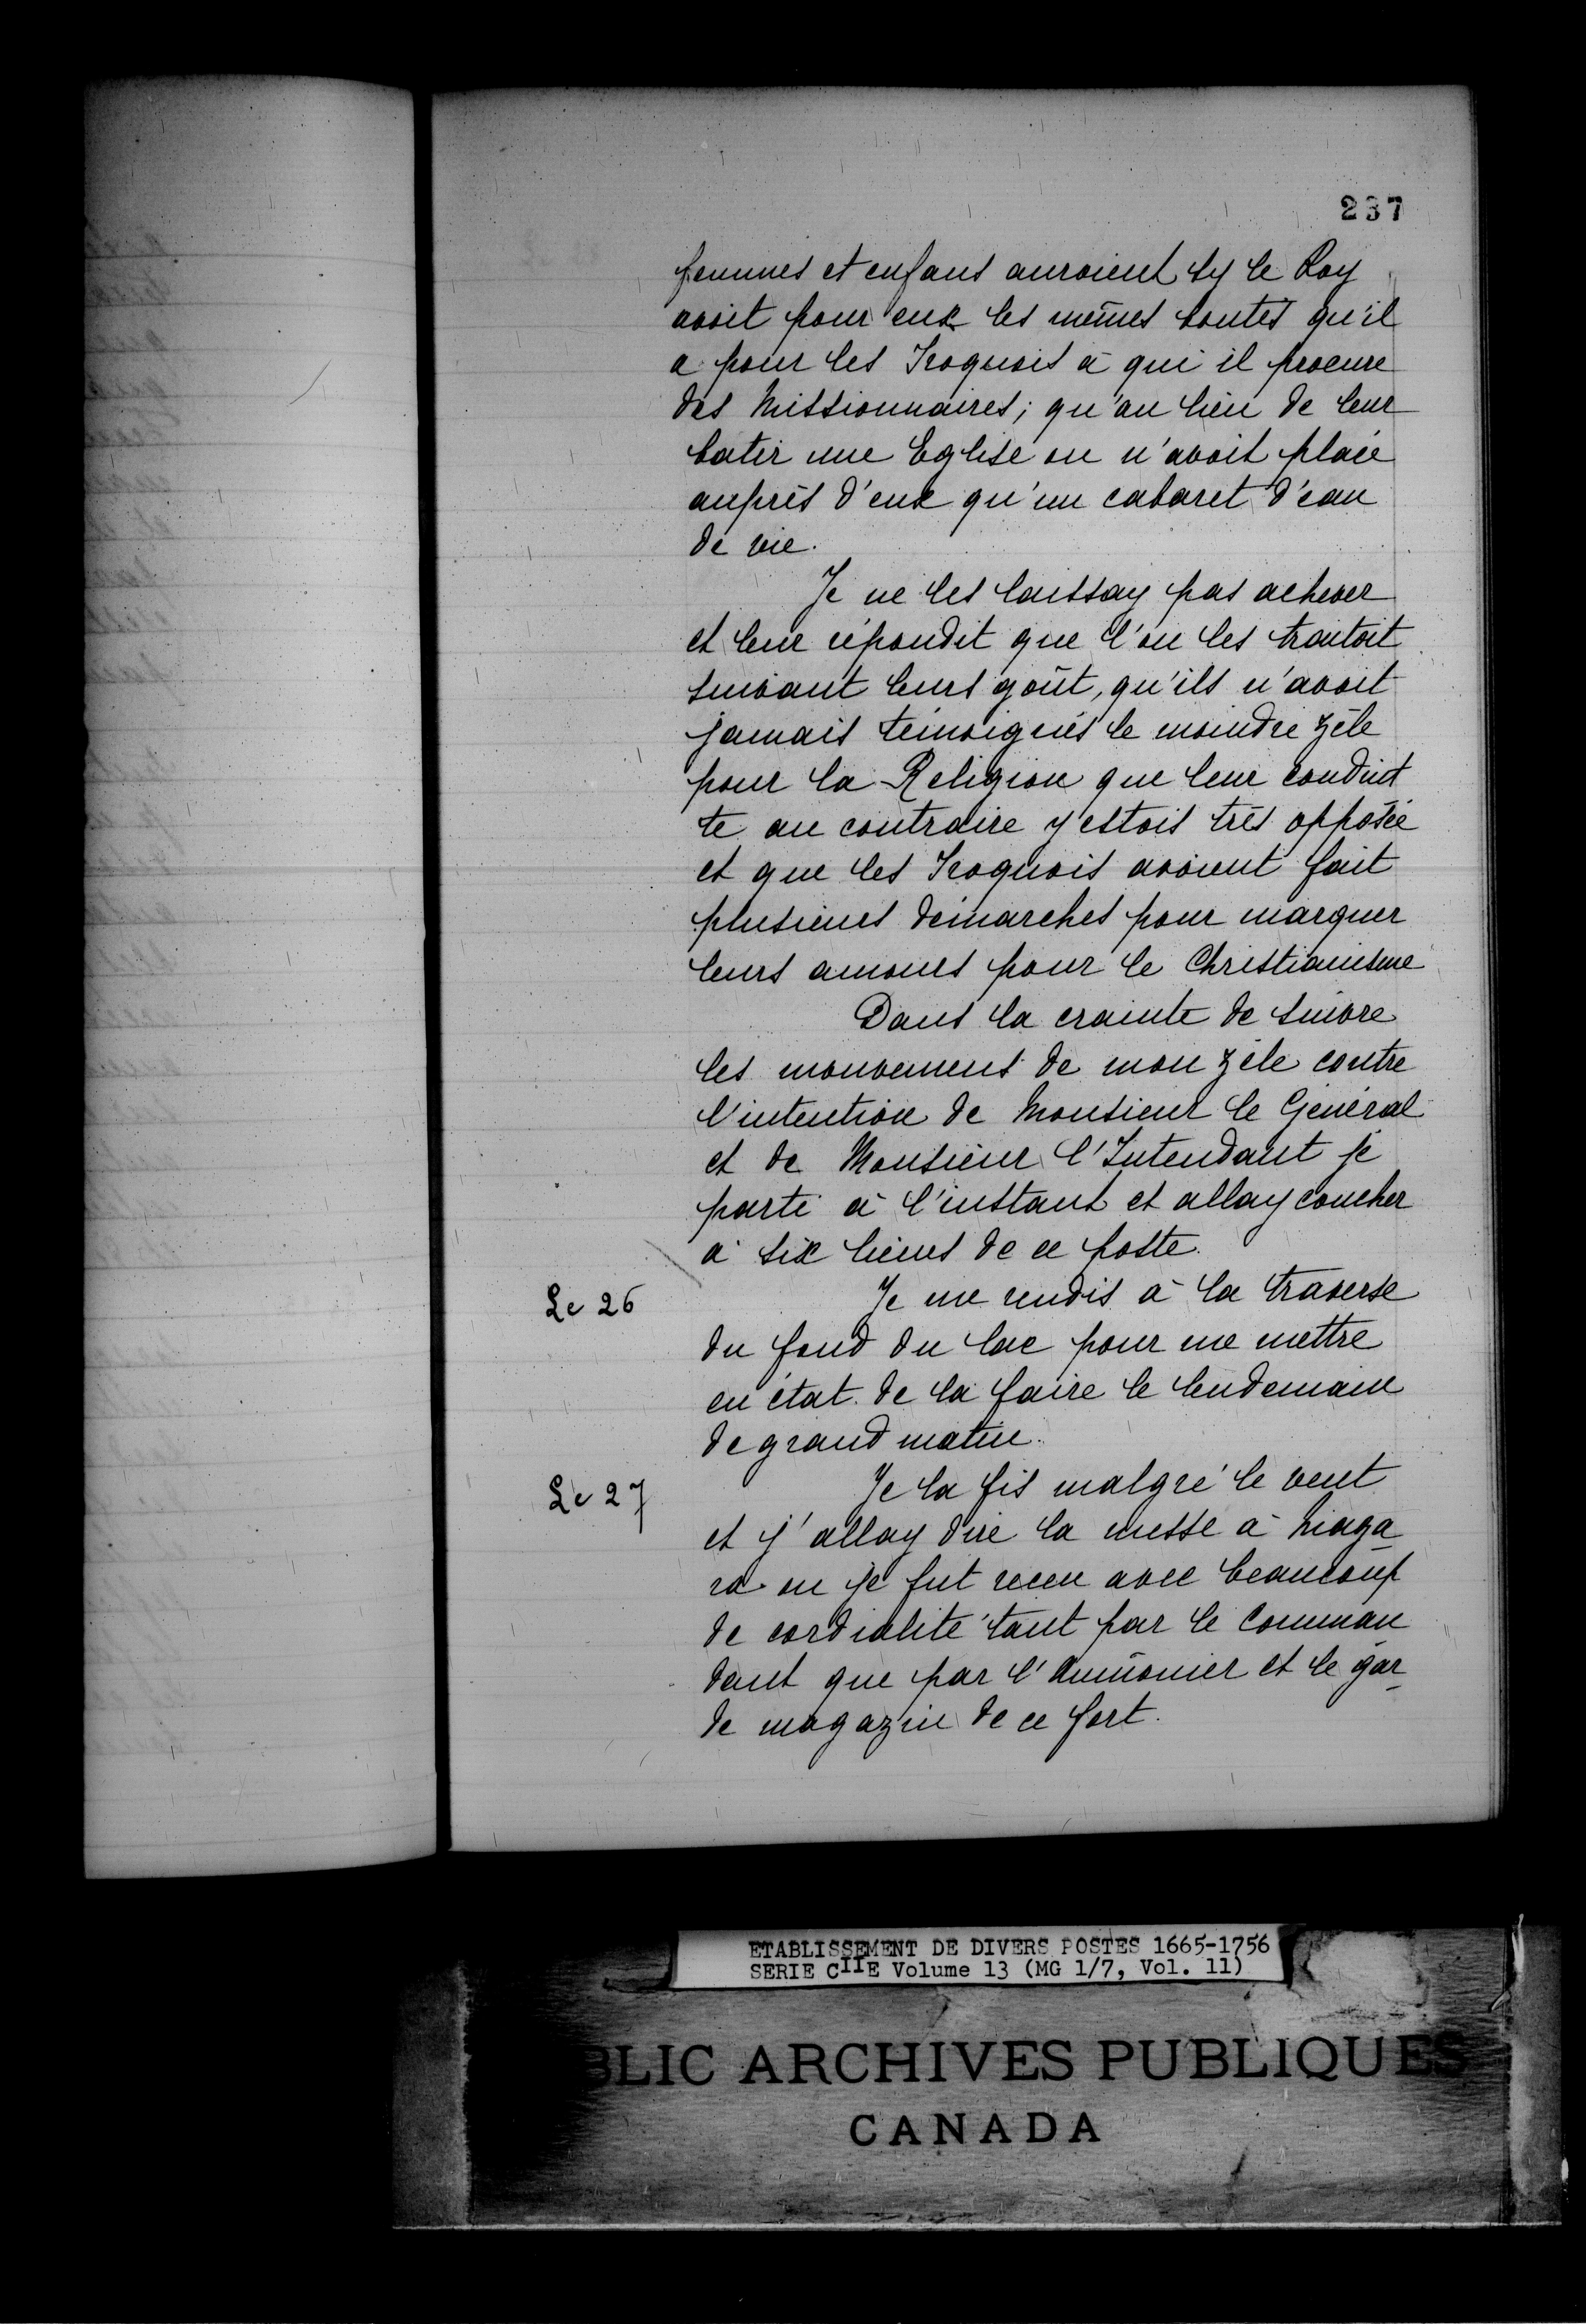 237
femmes et enfans auroient sy le Roy
avoit pour eux les mêmes bontés qu'il
a pour les Iroquois à qui il procure
des Missionnaires; qu'au lieu de leur
batir une Eglise on n'avoit placé
auprès d'eux qu'un cabaret d'eau
de vie.
Je ne les laissay pas achever
et leur répondit que l'on les traitoit
suivant leurs goût, qu'ils n'avoit
jamais témoignés le moindre zèle
pour la Religion que leur conduit
te au contraire y estois très opposée
et que les Iroquois avoient fait
plusieurs démarches pour marquer
leurs amours pour le Christianisme
Dans la crainte de suivre
les mouvemens de mon zèle contre
l'intention de Monsieur le Général
et de Monsieur l'Intendant je
parti à l'instant et allay coucher
à six lieues de ce poste.
Le 26 Je me rendis à la traverse
du fond du lac pour me mettre
en état de la faire le lendemain
de grand matin.
Le 27 Je la fis malgré le vent
et j'allay dire la messe à Niaga
ra ou je fut receu avec beaucoup
de cordialité tant par le Comman
dant que par l'Aumônier et le gar
de magazin de ce fort.
ETABLISSEMENT DE DIVERS POSTES 1665-1756
SERIE CIIE Volume 13 (MG 1/7, Vol. 11)
BLIC ARCHIVES PUBLIQUES
CANADA